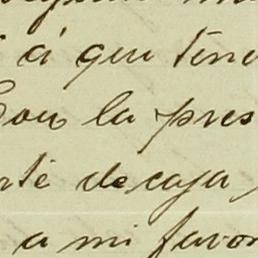 á que tene
Con la pres
rte de caja
a mi favor